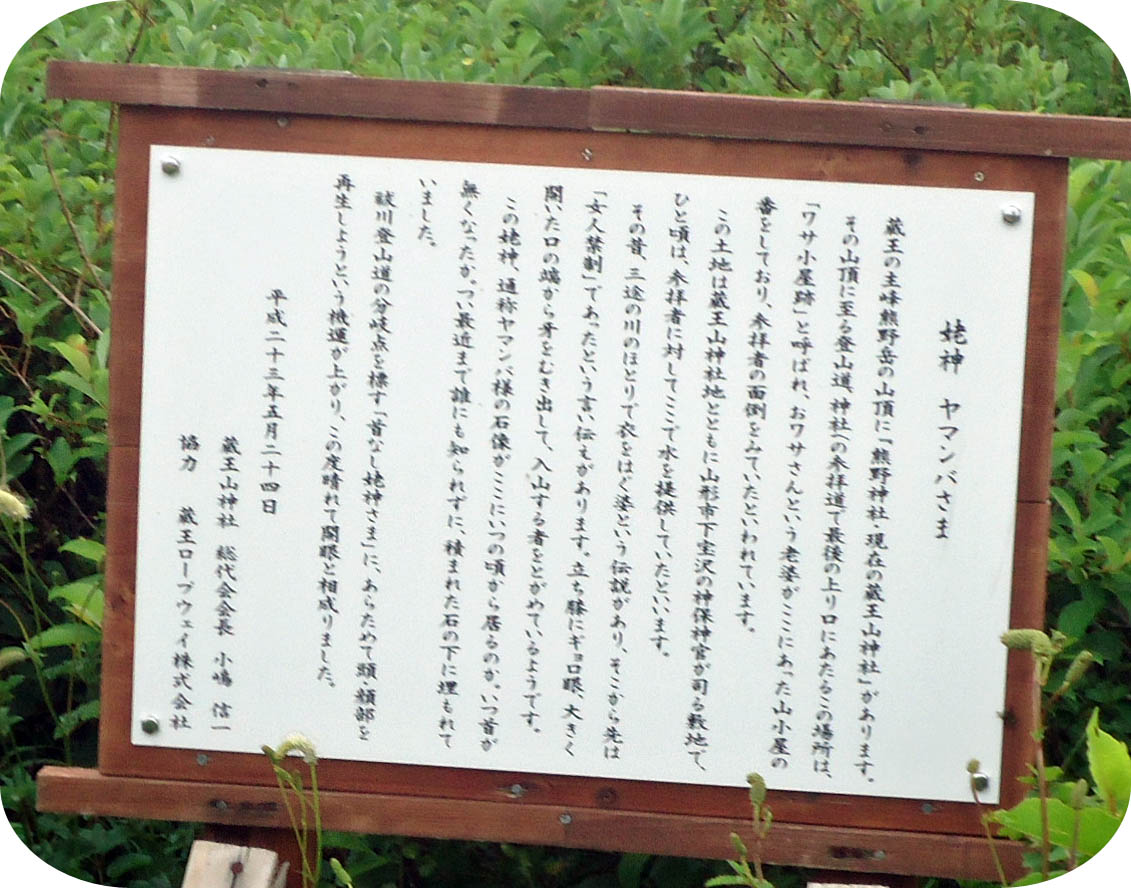 姥神　ヤマンバさま
蔵王の主峰熊野岳の山頂に「熊野神社・現在の蔵王山神社」があります。
その山頂に至る登山道、神社への参拝道で最後の上り口にあたるこの場所は、
「ワサ小屋跡」と呼ばれ、おワサさんという老婆がここにあった山小屋の
番をしており、参拝者の面倒をみていたといわれています。
この土地は蔵王山神社地とともに山形市下宝沢の神保神官が司る敷地で、
ひと頃は、参拝者に対してここで水を提供していたといいます。
その昔、三途の川のほとりで衣をはぐ婆という伝説があり、そこから先は
「女人禁制」であったという言い伝えがあります。立ち膝にギョロ眼、大きく
開いた口の端から牙をむき出して、入山する者をとがめているようです。
この姥神、通称ヤマンバ様の石像がここにいつの頃から居るのか。いつ首が
無くなったか。つい最近まで誰にも知られずに、積まれた石の下に埋もれて
いました。
祓川登山道の分岐点を標す「首なし姥神さま」に、あらためて頭・顔部を
再生しようという機運が上がり、この度晴れて開眼と相成りました。
平成二十三年五月二十四日
蔵王山神社　総代会会長　小嶋　信一
協力　蔵王ロープウェイ株式会社